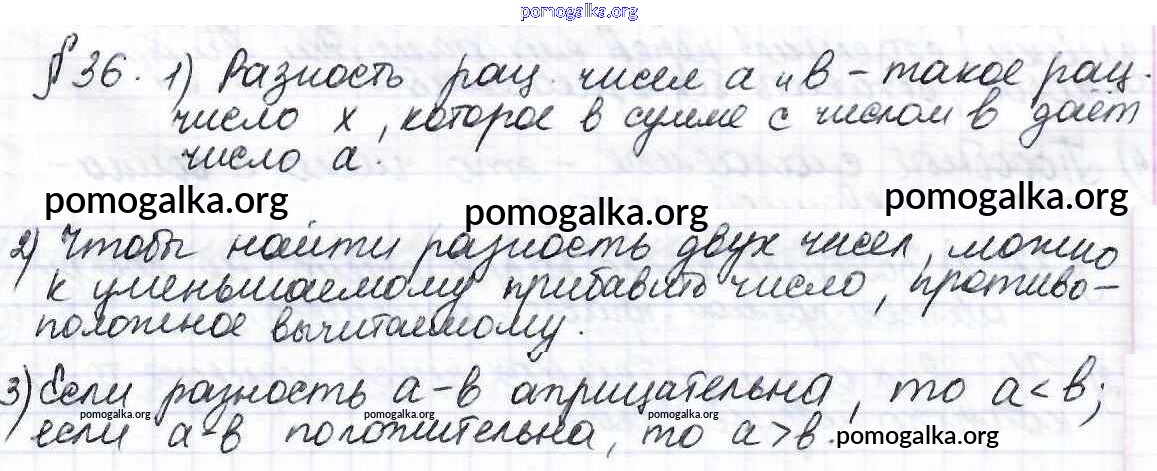 pomogalka.org
§ 36. 1) Разность рац. чисел а и в – такое рац.
число х, которое в сумме с числом в даёт
число а.
pomogalka.org pomogalka.org pomogalka.org
2) Чтобы найти разность двух чисел, можно
к уменьшаемому прибавить число, противо-
положное вычитаемому.
3) Если разность а – в отрицательна, то а < в;
pomogalka.org pomogalka.org pomogalka.org
если а – в положительна, то а > в.
pomogalka.org